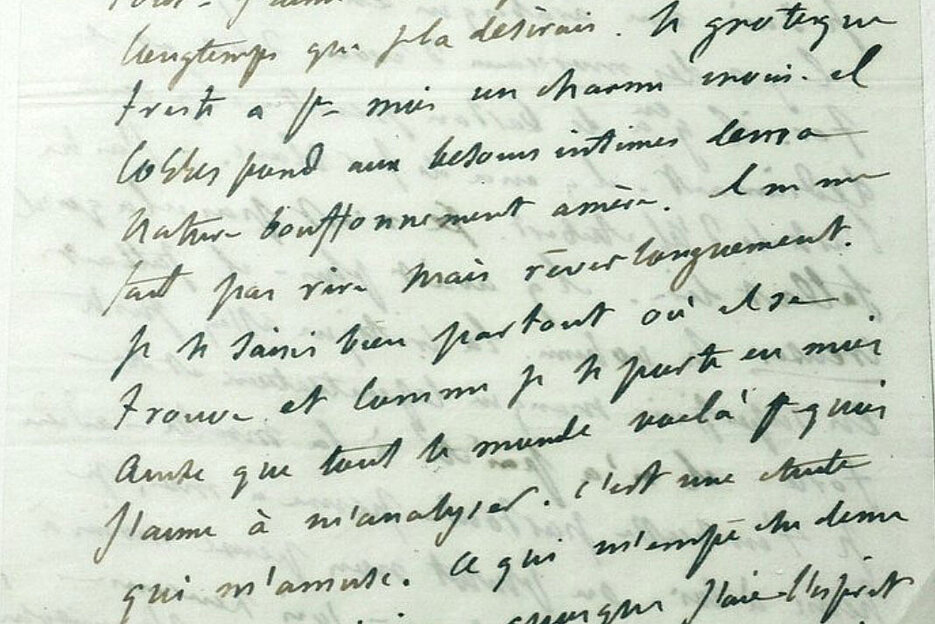 longtemps que je la désirais. le grotesque
triste a pr moi un charme inouï. il
correspond aux besoins intimes de ma
nature bouffonnement amère. il ne me
fait pas rire mais rêver longuement.
je le saisis bien partout où il se
trouve et comme je le porte en moi
ainsi que tout le monde voilà pr quoi
j'aime à m'analyser. c'est une étude
qui m'amuse. ce qui m'empêche de me
quoique j'aie l'esprit